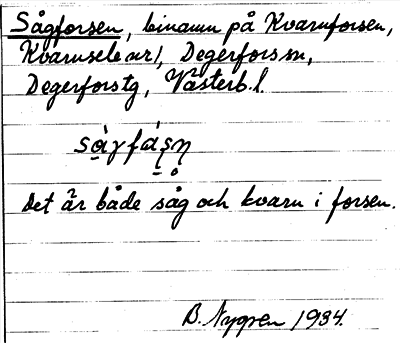 Sågforsen, binamn på Kvarnforsen,
Kvarnsele nr 1, Degerfors sn,
Degerfors tg, Västerb. l.
Det är både såg och kvarn i forsen.
B. Nygren 1934.